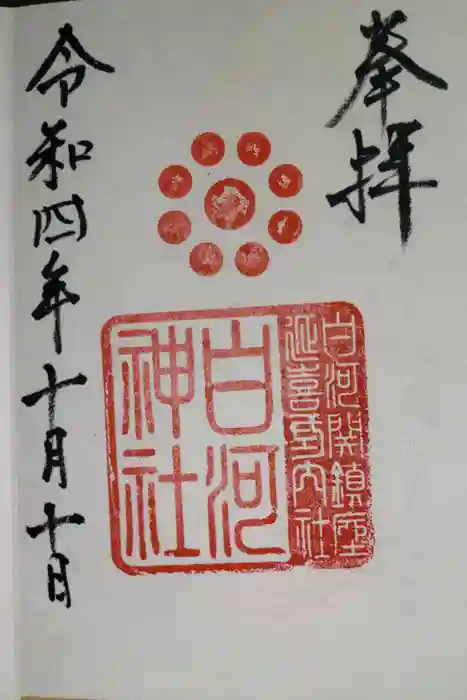 奉拝
白河関鎮座
延喜式内社
白河
神社
令和四年十月十日